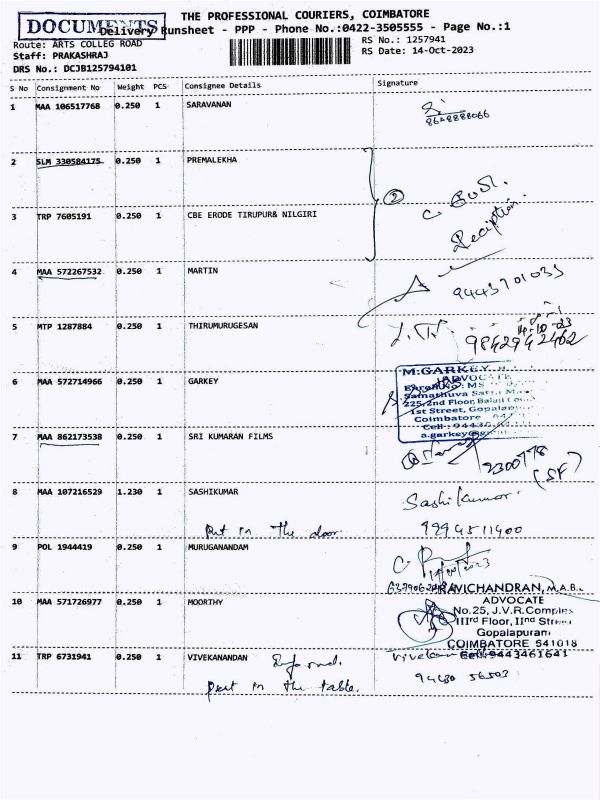 DOCUMENTS
THE PROFESSIONAL COURIERS, COIMBATORE
Delivery Runsheet - PPP - Phone No.:0422-3505555 - Page No.:1
Route: ARTS COLLEG ROAD
RS No.: 1257941
Staff: PRAKASHRAJ
RS Date: 14-Oct-2023
DRS No.: DCJB125794101
S No Consignment No Weight PCS Consignee Details Signature
1 MAA 106517768 0.250 1 SARAVANAN
2 SLM 330584175 0.250 1 PREMALEKHA
2
3 TRP 7605191 0.250 1 CBE ERODE TIRUPUR& NILGIRI
4 MAA 572267532 0.250 1 MARTIN
5 MTP 1287884 0.250 1 THIRUMURUGESAN
14-10-23
9842942462
6 MAA 572714966 0.250 1 GARKEY
M.GARKEY
ADVOCATE
Samathuva
225, 2nd Floor,
1st Street,
Coimbatore
Cell:
7 MAA 862173538 0.250 1 SRI KUMARAN FILMS
(SF)
8 MAA 107216529 1.230 1 SASHIKUMAR
Sashi Kumar
Put in the door
9994511400
9 POL 1944419 0.250 1 MURUGANANDAM
RAVICHANDRAN, M.A.B.L
10 MAA 571726977 0.250 1 MOORTHY
ADVOCATE
No.25, J.V.R.Complex
IIIrd Floor, IInd Street
Gopalapuram
COIMBATORE 641018
Cell:9443461641
11 TRP 6731941 0.250 1 VIVEKANANDAN
put in the table.